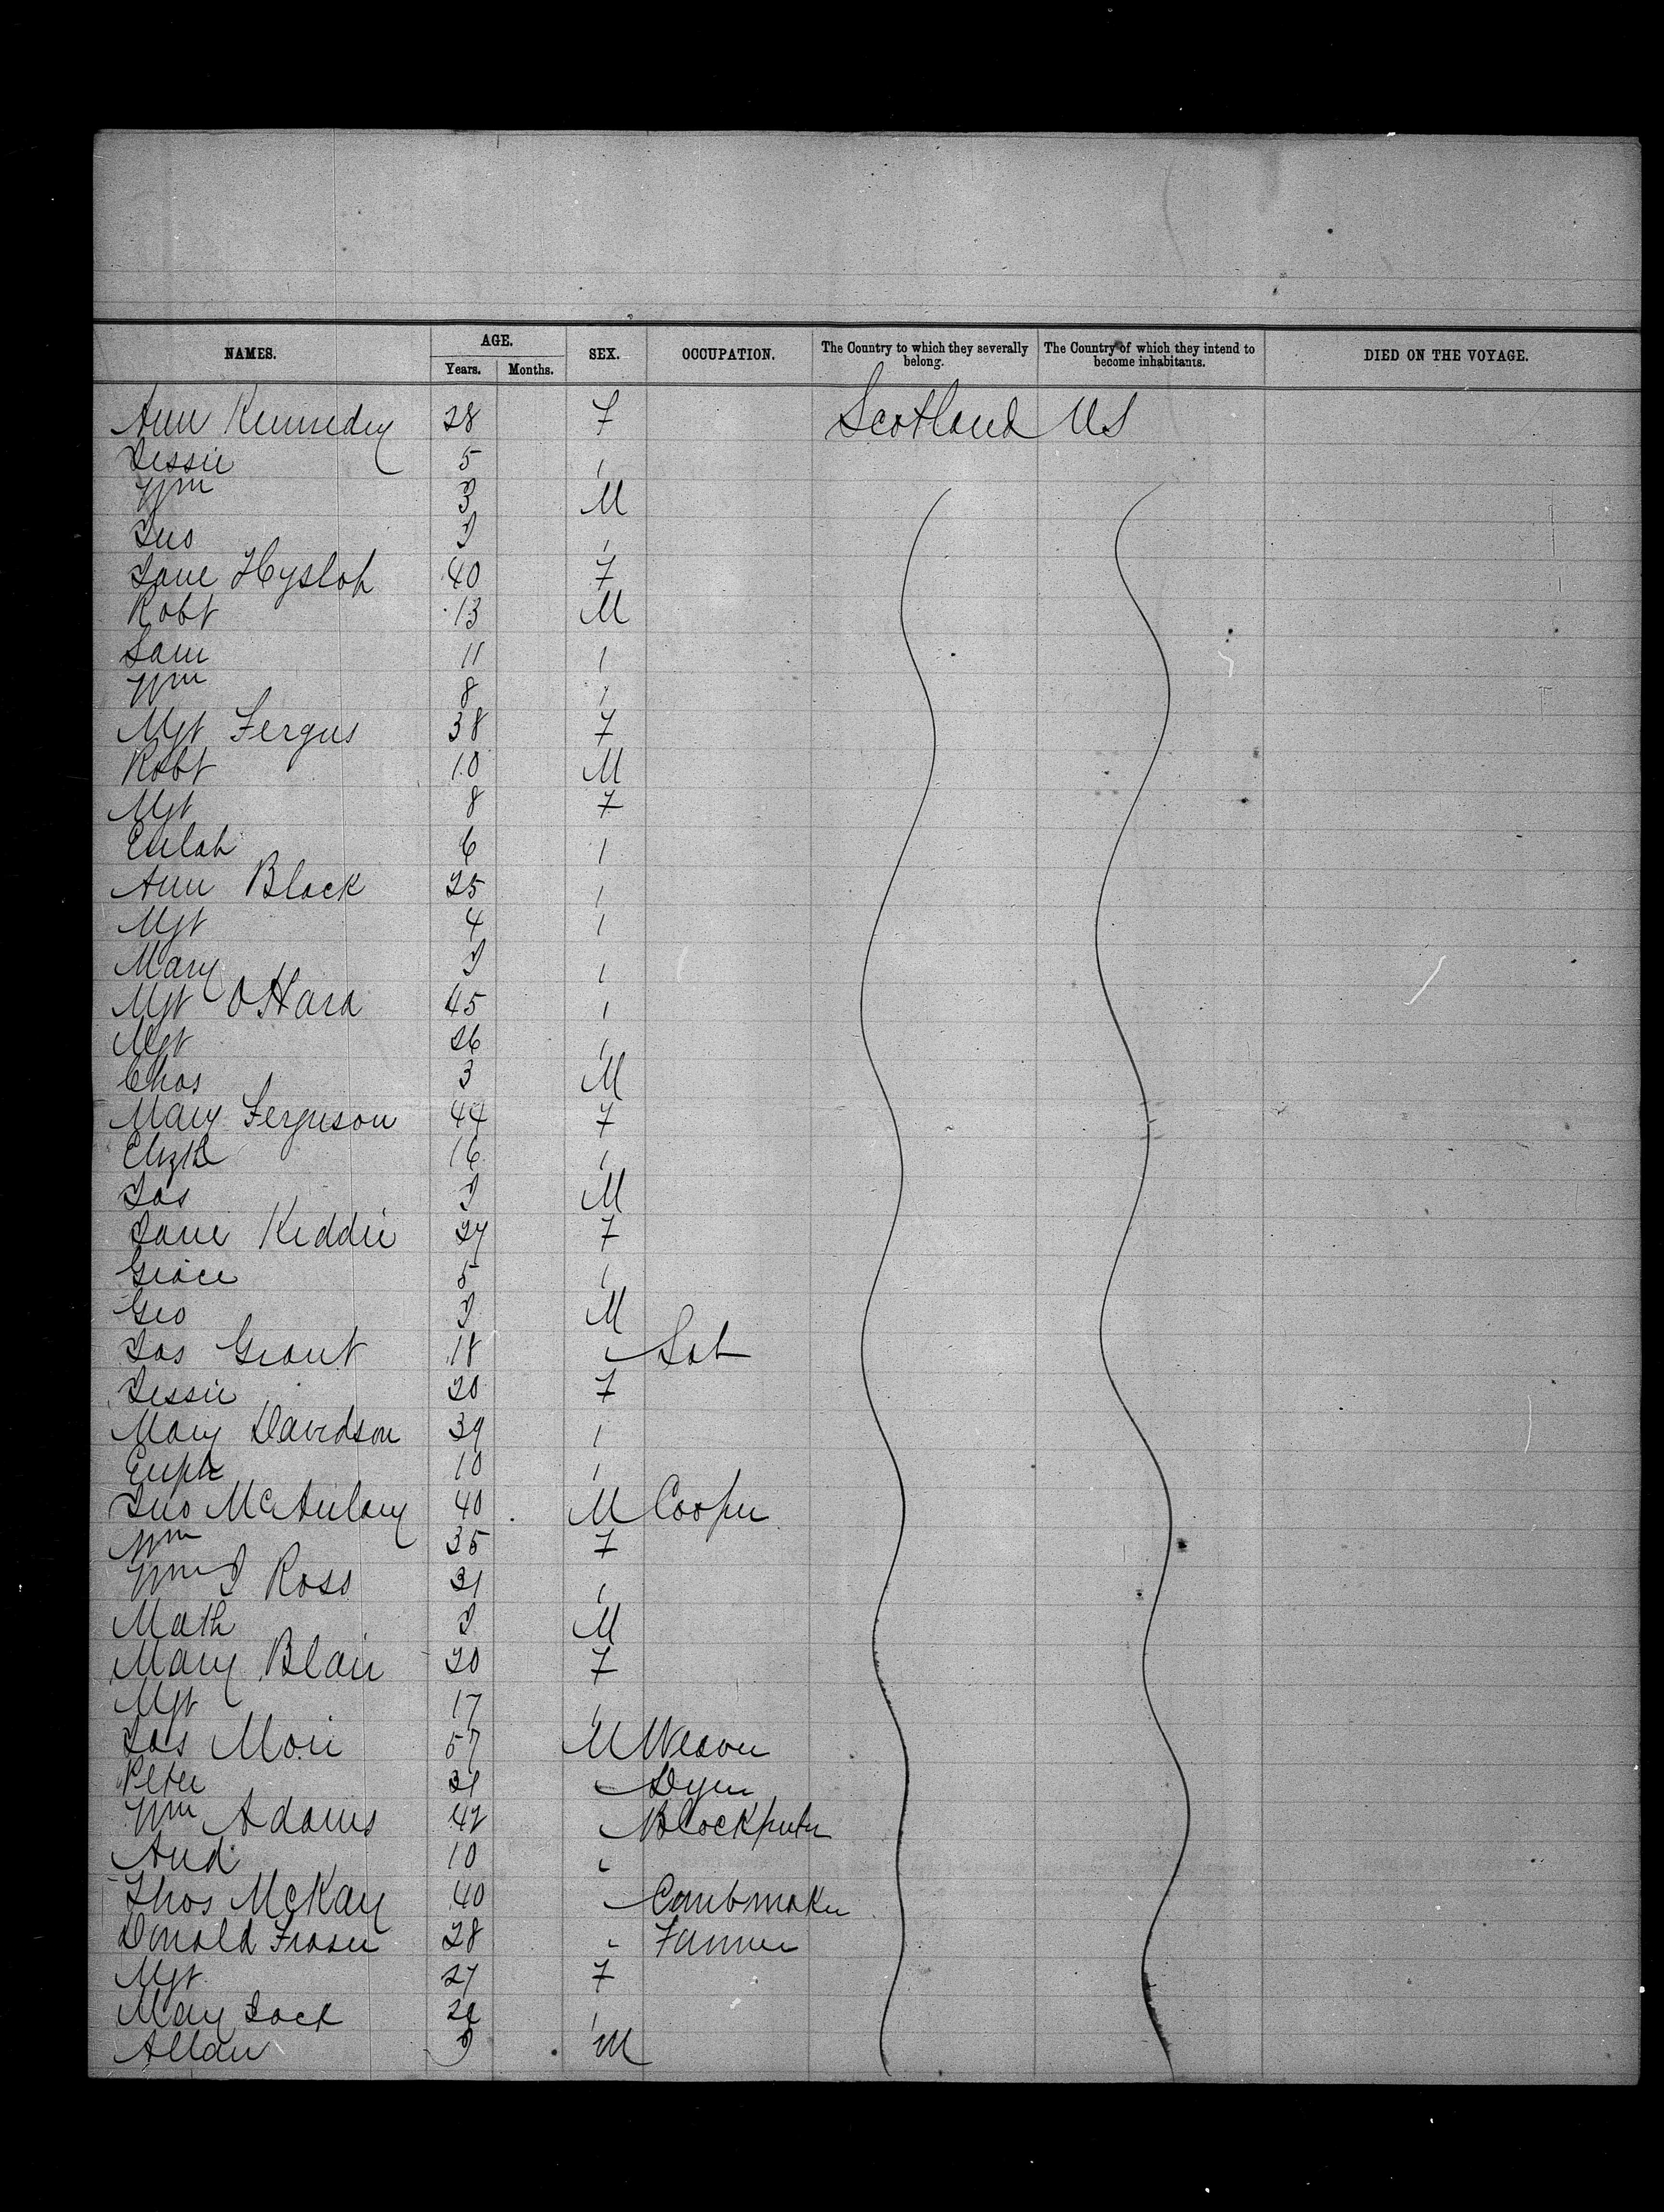 NAMES. AGE. SEX. OCCUPATION. The Country to which they severally belong. The Country of which they intend to become inhabitants. DIED ON THE VOYAGE.
Years. Months.
Ann Kennedy 28 F Scotland US
Jessie 5 "
Wm 3 M
Jno "
Jane Hyslop 40 F
Robt 13 M
Sam 11 "
Wm 8 "
Mgt Fergus 38 F
Robt 10 M
Mgt 8 F
6 "
Ann Black 25 "
Mgt 4 "
Mary "
Mgt OHara 45 "
Mgt 26 "
Chas 3 M
Mary Ferguson 44 F
Elizth 16 "
Jas M
Jane Keddie 27 F
Grace 5 "
Geo M
Jas Grant 18 " Lab
Jessie 20 F
Mary Davidson 39 "
Euph 10 "
Jno McAulay 40 M Cooper
Wm 35 F
Ross 31 "
Math M
Mary Blair 20 F
Mgt 17 "
Jas Moir 57 M Weaver
Peter 21 " Dyer
Wm Adams 42 " Blockprntr
And 10 "
Thos McKay 40 " Combmaker
Donald Fraser 28 " Farmer
Mgt 27 F
Mary Jack "
Allan M